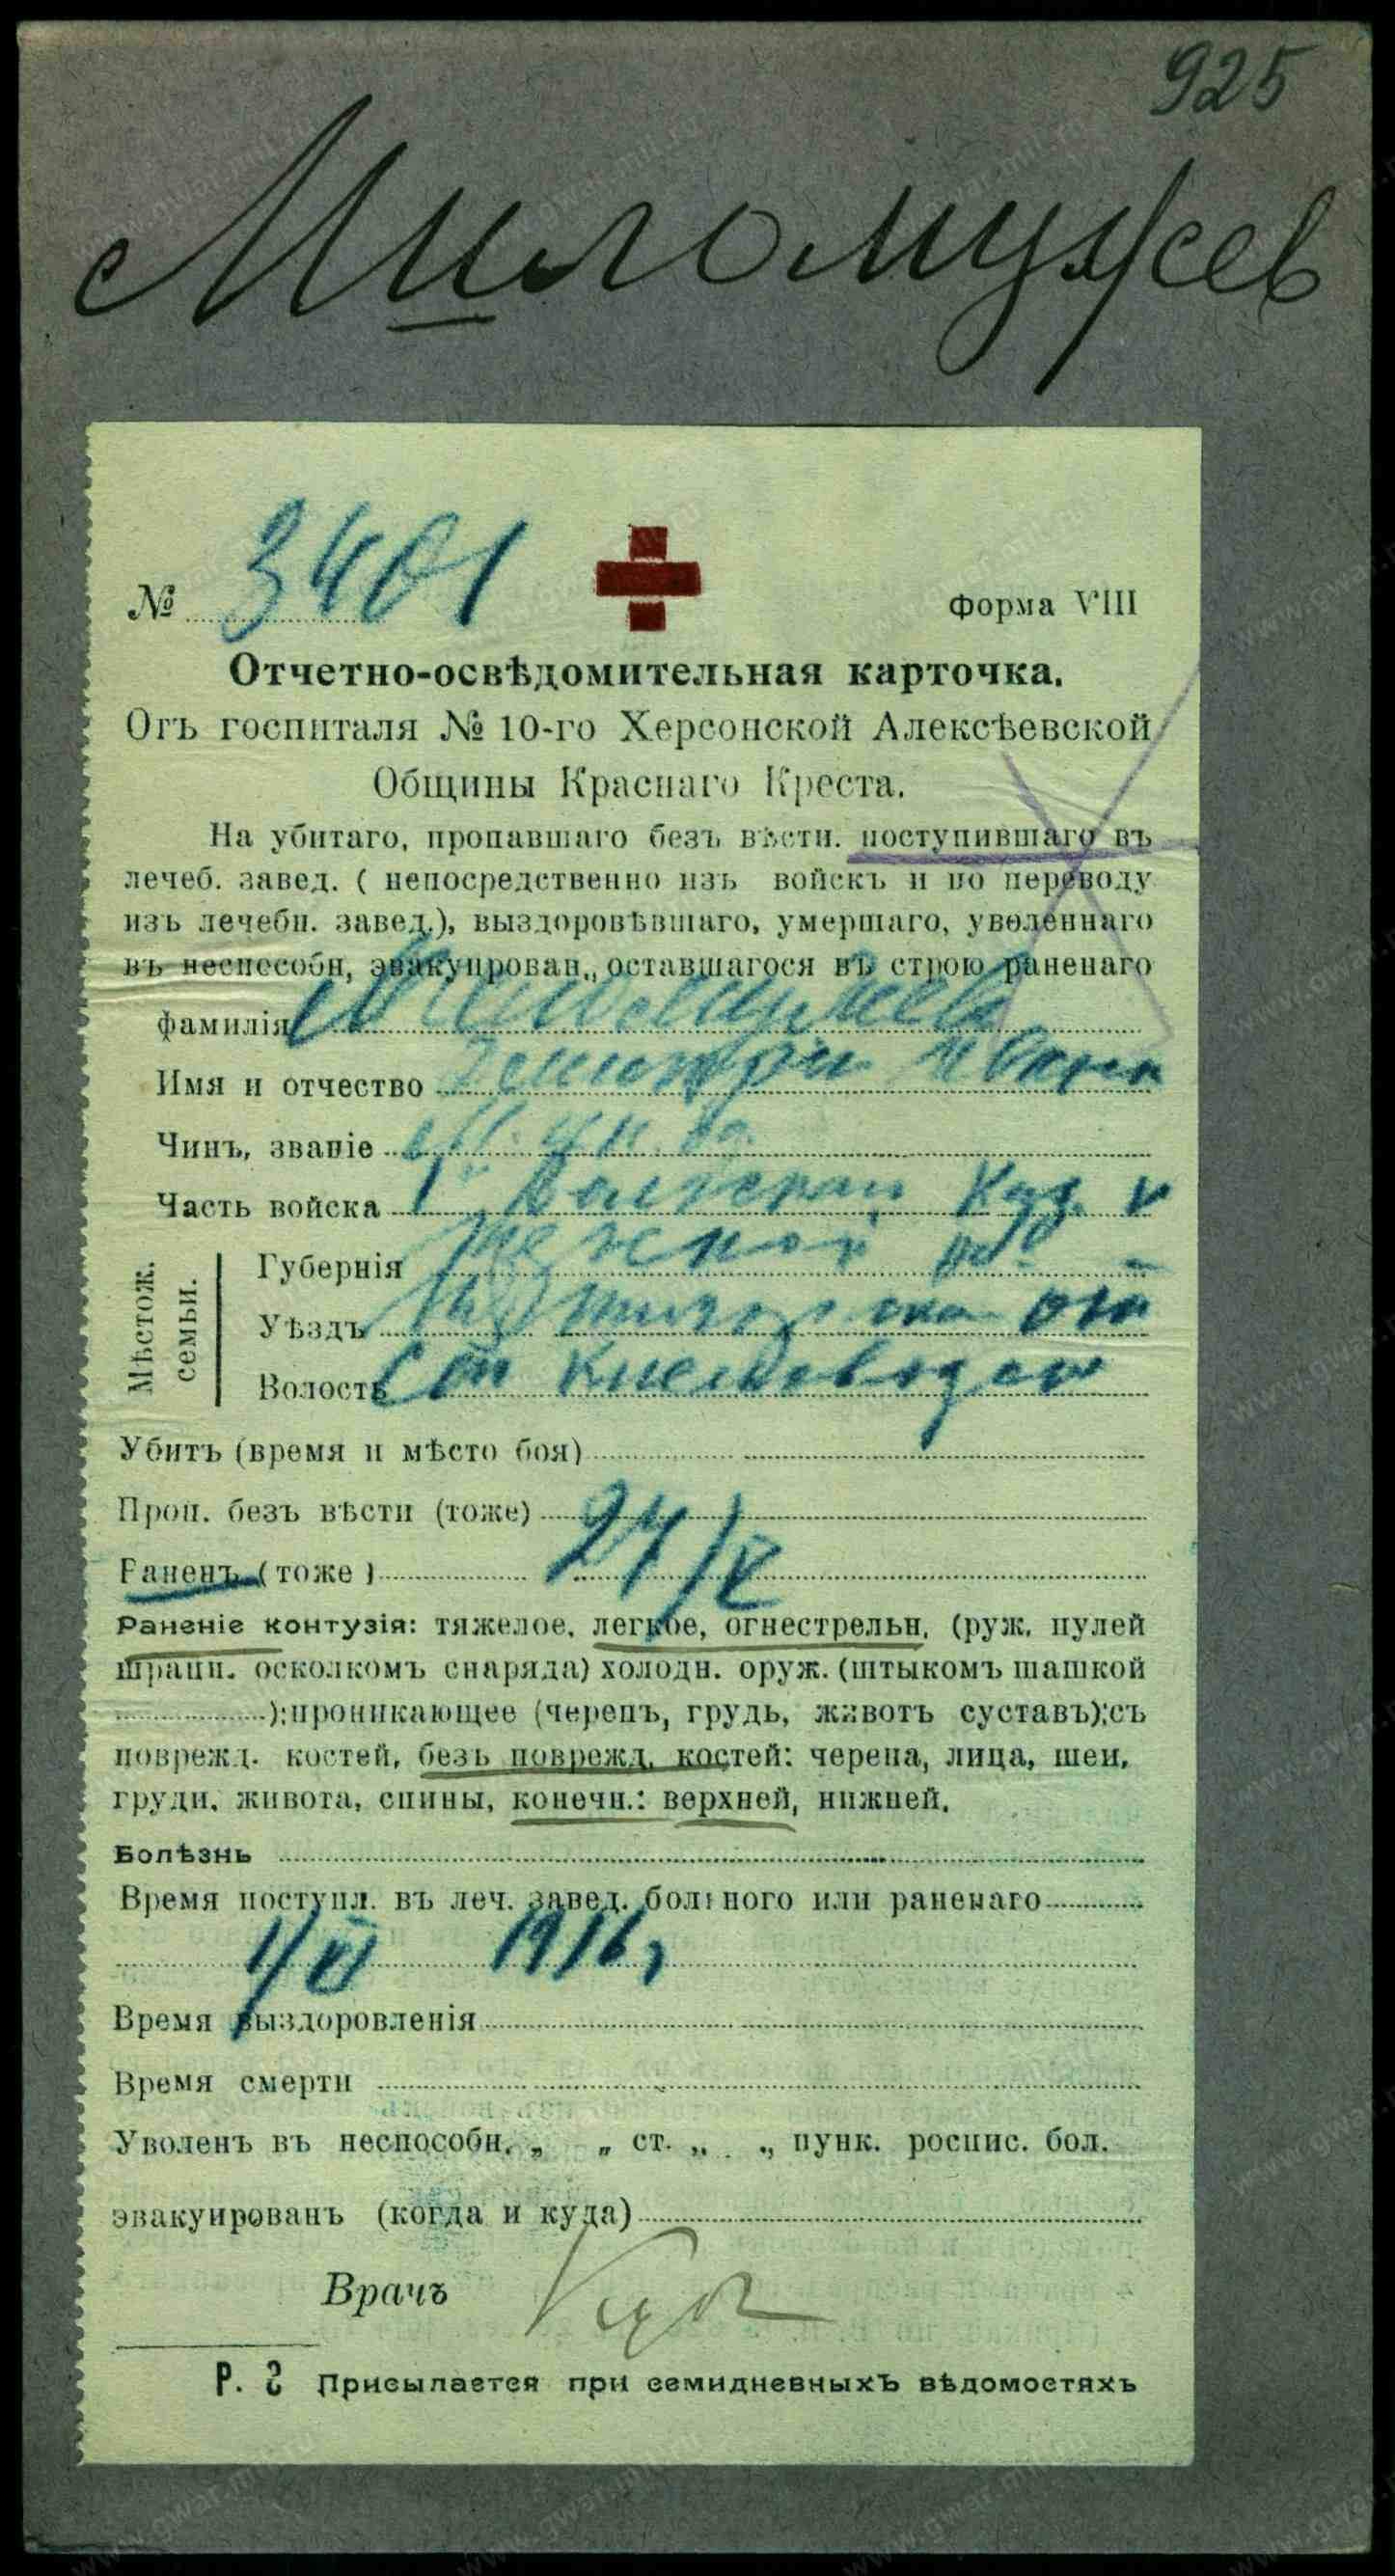 925
Миломужев
№ 3401
Форма VIII
Отчетно-освѣдомительная карточка.
Отъ госпиталя № 10-го Херсонской Алексѣевской
Общины Краснаго Креста.
На убитаго, пропавшаго безъ вѣсти. поступившаго въ
лечеб. завед. ( непосредственно изъ войскъ и по переводу
изъ лечебн. завед.), выздоровѣвшаго, умершаго, уволеннаго
въ неспособн, эвакуирован,, оставшагося въ строю раненаго
фамилія Миломужев
Имя и отчество Дмитрий Иван
Чинъ, званіе
Часть войска 1й Волгский
Мѣстож. семьи.
Губернія Терской об.
Уѣздъ Пятигорска от
Волость Ст Кисловодск
Убитъ (время и мѣсто боя)
Проп. безъ вѣсти (тоже)
Раненъ (тоже) 24/V
Раненіе контузія: тяжелое, легкое, огнестрельн, (руж. пулей
шрапн. осколкомъ снаряда) холодн. оруж. (штыкомъ шашкой
);проникающее (черепъ, грудь, животъ суставъ);съ
поврежд. костей, безъ поврежд. костей: черепа, лица, шеи,
груди, живота, спины, конечн.: верхней, нижней.
Болѣзнь
Время поступл. въ леч. завед. больного или раненаго
1/VI 1916,
Время выздоровленія
Время смерти
Уволенъ въ неспособн. „ „ ст. „ „ пунк. роспис. бол.
эвакуированъ (когда и куда)
Врачъ
P. S Присылается при семидневныхъ вѣдомостяхъ
www.gwar.mil.ru